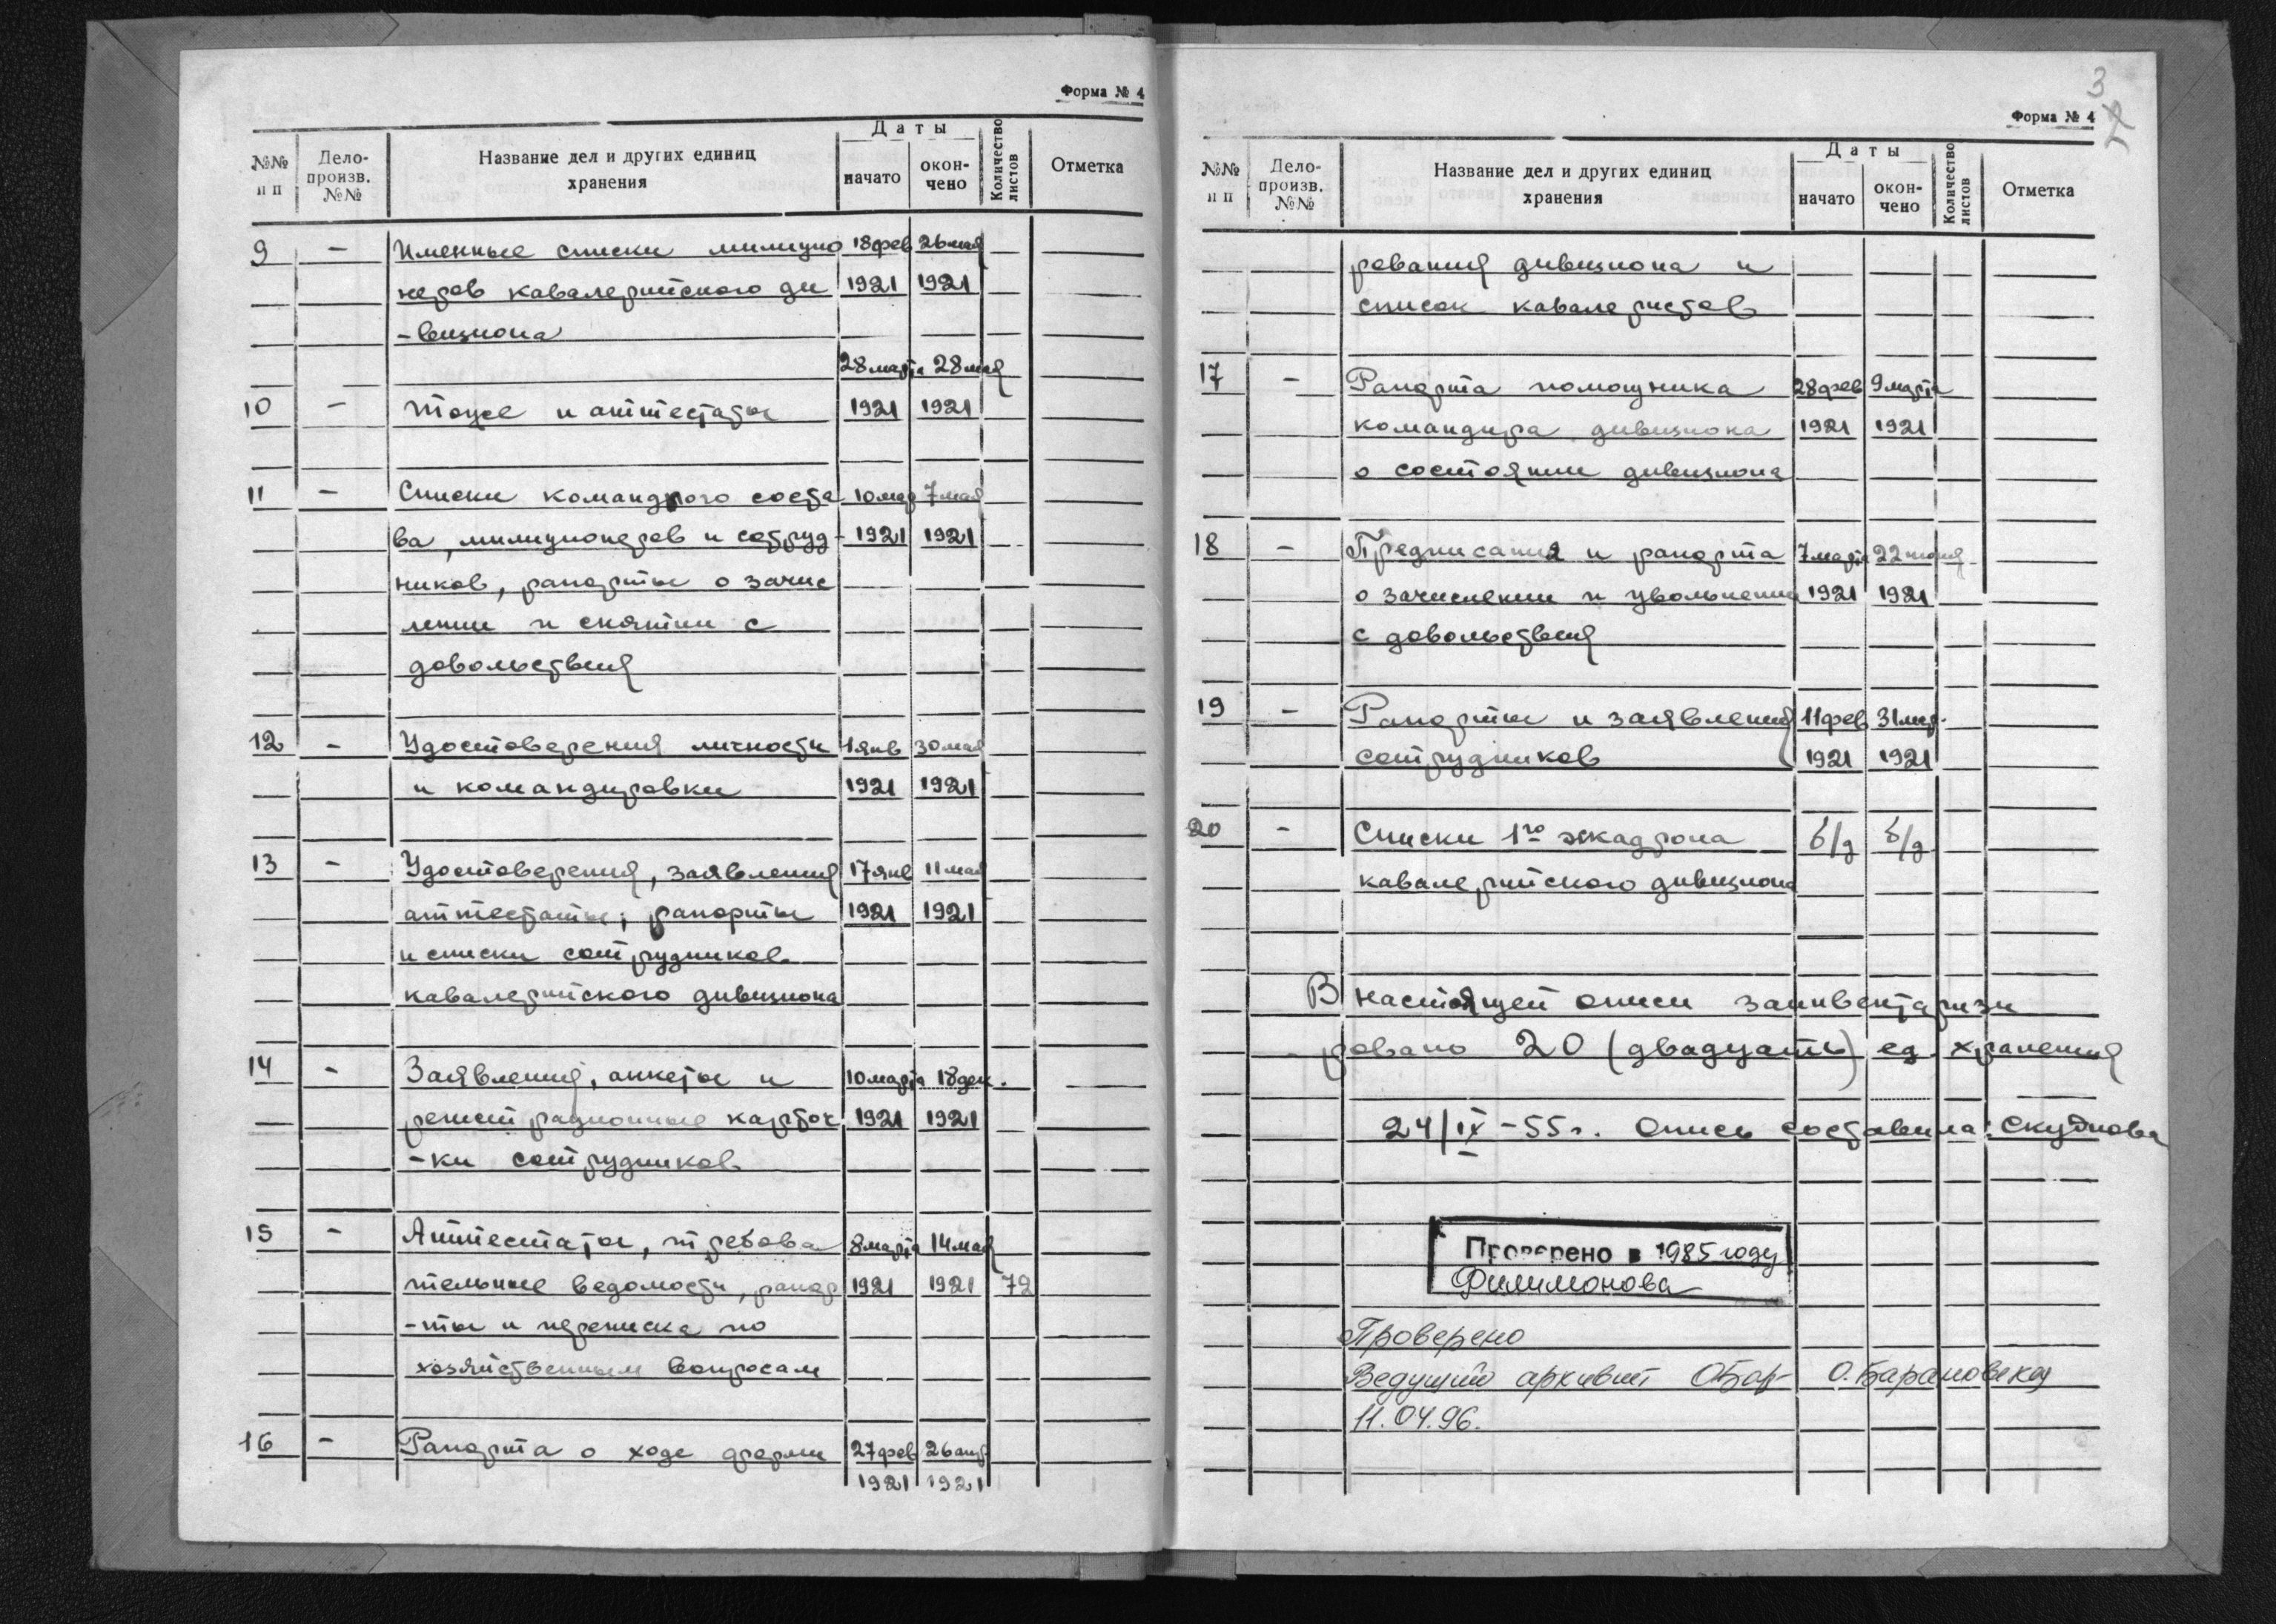 Форма № 4
№№ п п
Дело-произв. №№
Название дел и других единиц хранения
Даты
начато
окончено
Количество листов
Отметка
9 – Именные списки милицио 18 фев 26 мая
неров кавалерийского ди 1921 1921
-визиона
28 марта 28 мая
10 – Тоже и аттестаты 1921 1921
11 – Списки командного соста 10 мар 7 мая
ва, милиционеров и сотруд- 1921 1921
ников, рапорты о зачис
лении и снятии с
довольствия
12 – Удостоверения личности 1 янв 30 мая
и командировки 1921 1921
13 – Удостоверения, заявления 17 янв 11 мая
аттестаты, рапорты 1921 1921
и списки сотрудников
кавалерийского дивизиона
14 – Заявления, анкеты и 10 марта 18 дек.
регистрационные карточ 1921 1921
-ки сотрудников
15 – Аттестаты, требова 8 марта 14 мая
тельные ведомости, рапор 1921 1921 72
-ты и переписка по
хозяйственным вопросам
16 – Рапорта о ходе форми 27 фев 26 апр
1921 1921
3
Форма № 4
№№ п п
Дело-произв. №№
Название дел и других единиц хранения
Даты
начато
окончено
Количество листов
Отметка
рования дивизиона и
список кавалеристов
17 – Рапорта помощника 28 фев 9 марта
командира дивизиона 1921 1921
о состоянии дивизиона
18 – Предписания и рапорта 7 марта 22 июня
о зачислении и увольнении 1921 1921
с довольствия
19 – Рапорты и заявления 11 фев 31
сотрудников 1921 1921
20 – Списки 1го эскадрона б/д б/д
кавалерийского дивизиона
В настоящей описи заинвентаризи
ровано 20 (двадцать) ед. хранения
24/IX – 55 г. Опись составила: Скуднова
Проверено в 1985 году
Филимонова
Проверено
Ведущий архивист О. Барановская
11.04.96.